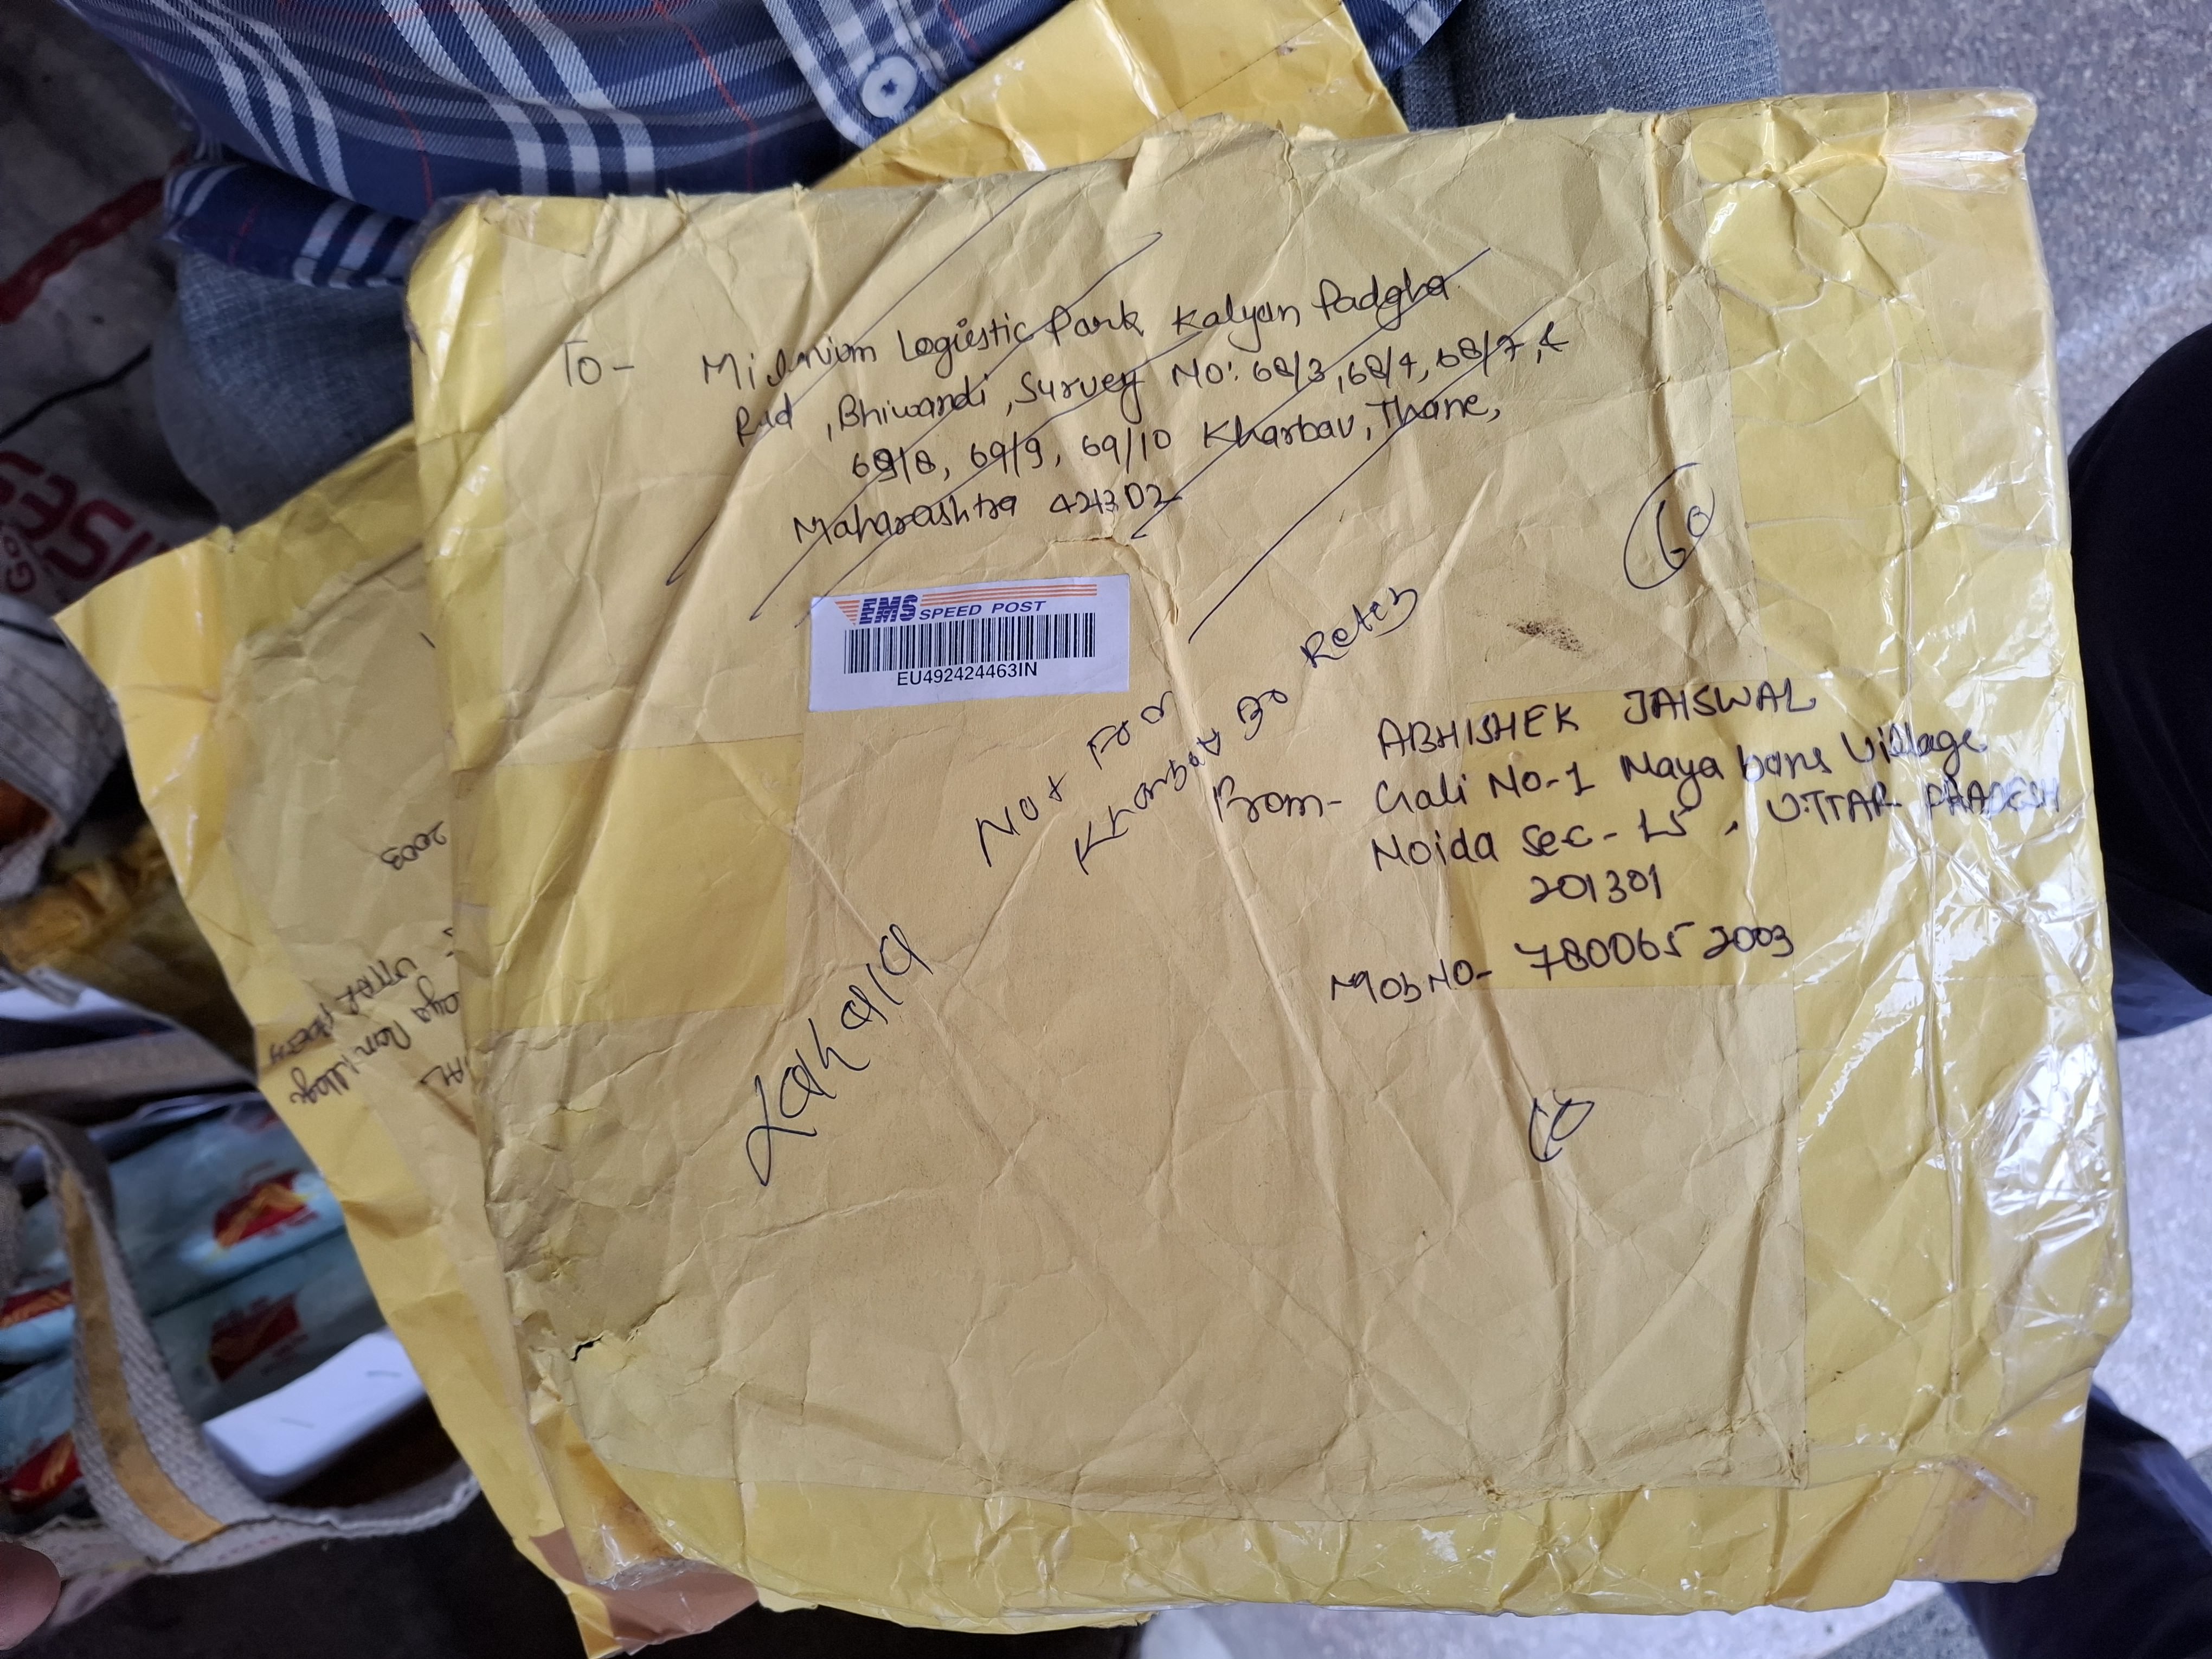 To- Millenium Logistic Park Kalyan Padgha
Rd, Bhiwandi, Survey No: 69/3, 69/4, 69/7A
69/8, 69/9, 69/10 Kharbav, Thane,
Maharashtra 421302
EMS SPEED POST
EU492424463IN
Not
Kharbav
60
ABHISHEK JAISWAL
From- Gali No-1 Naya bans Village
Noida Sec-15, UTTAR PRADESH
201301
Mob No- 7800652003
Village
UTTAR
2003